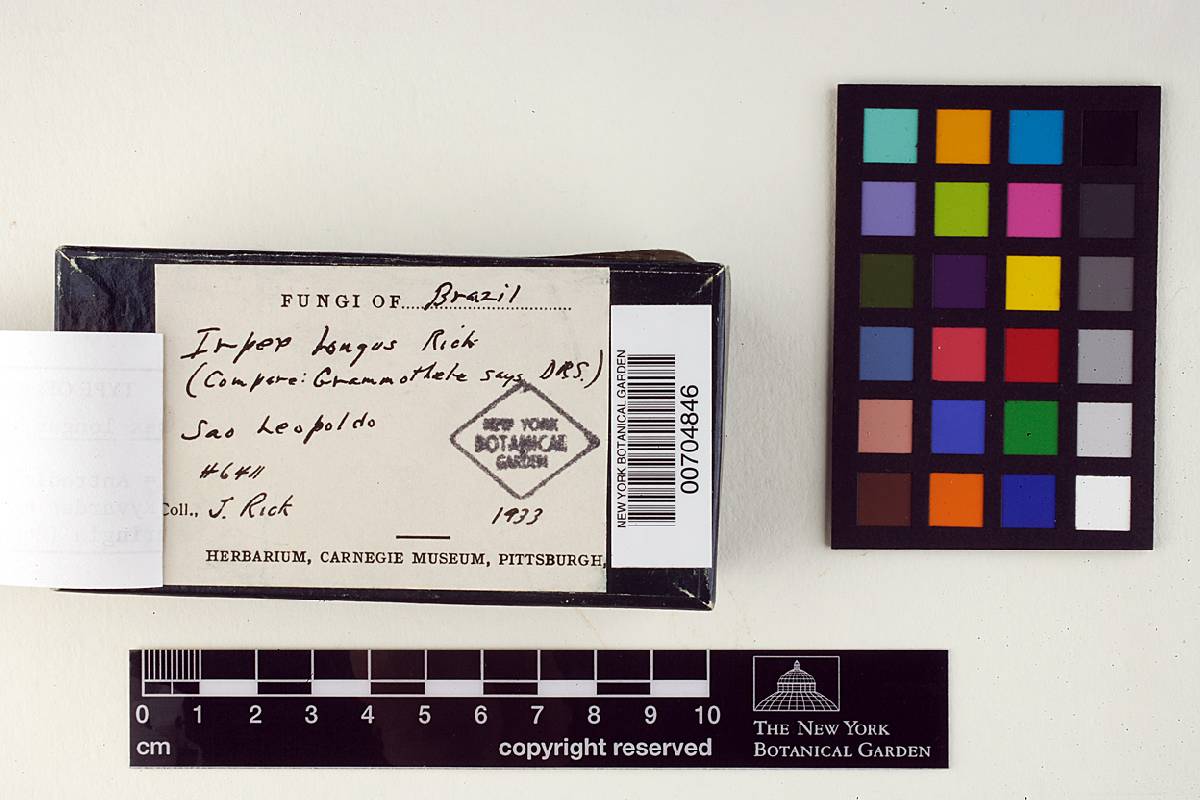 FUNGI OF Brazil
Irpex longus Rick
(Compare: Grammothele says D.P.S.)
Sao Leopoldo
#641
Coll., J. Rick
1933
HERBARIUM, CARNEGIE MUSEUM, PITTSBURGH,
NEW YORK
BOTANICAL
GARDEN
NEW YORK BOTANICAL GARDEN
00704846
TYPE O
0 1 2 3 4 5 6 7 8 9 10
cm
copyright reserved
THE NEW YORK
BOTANICAL GARDEN